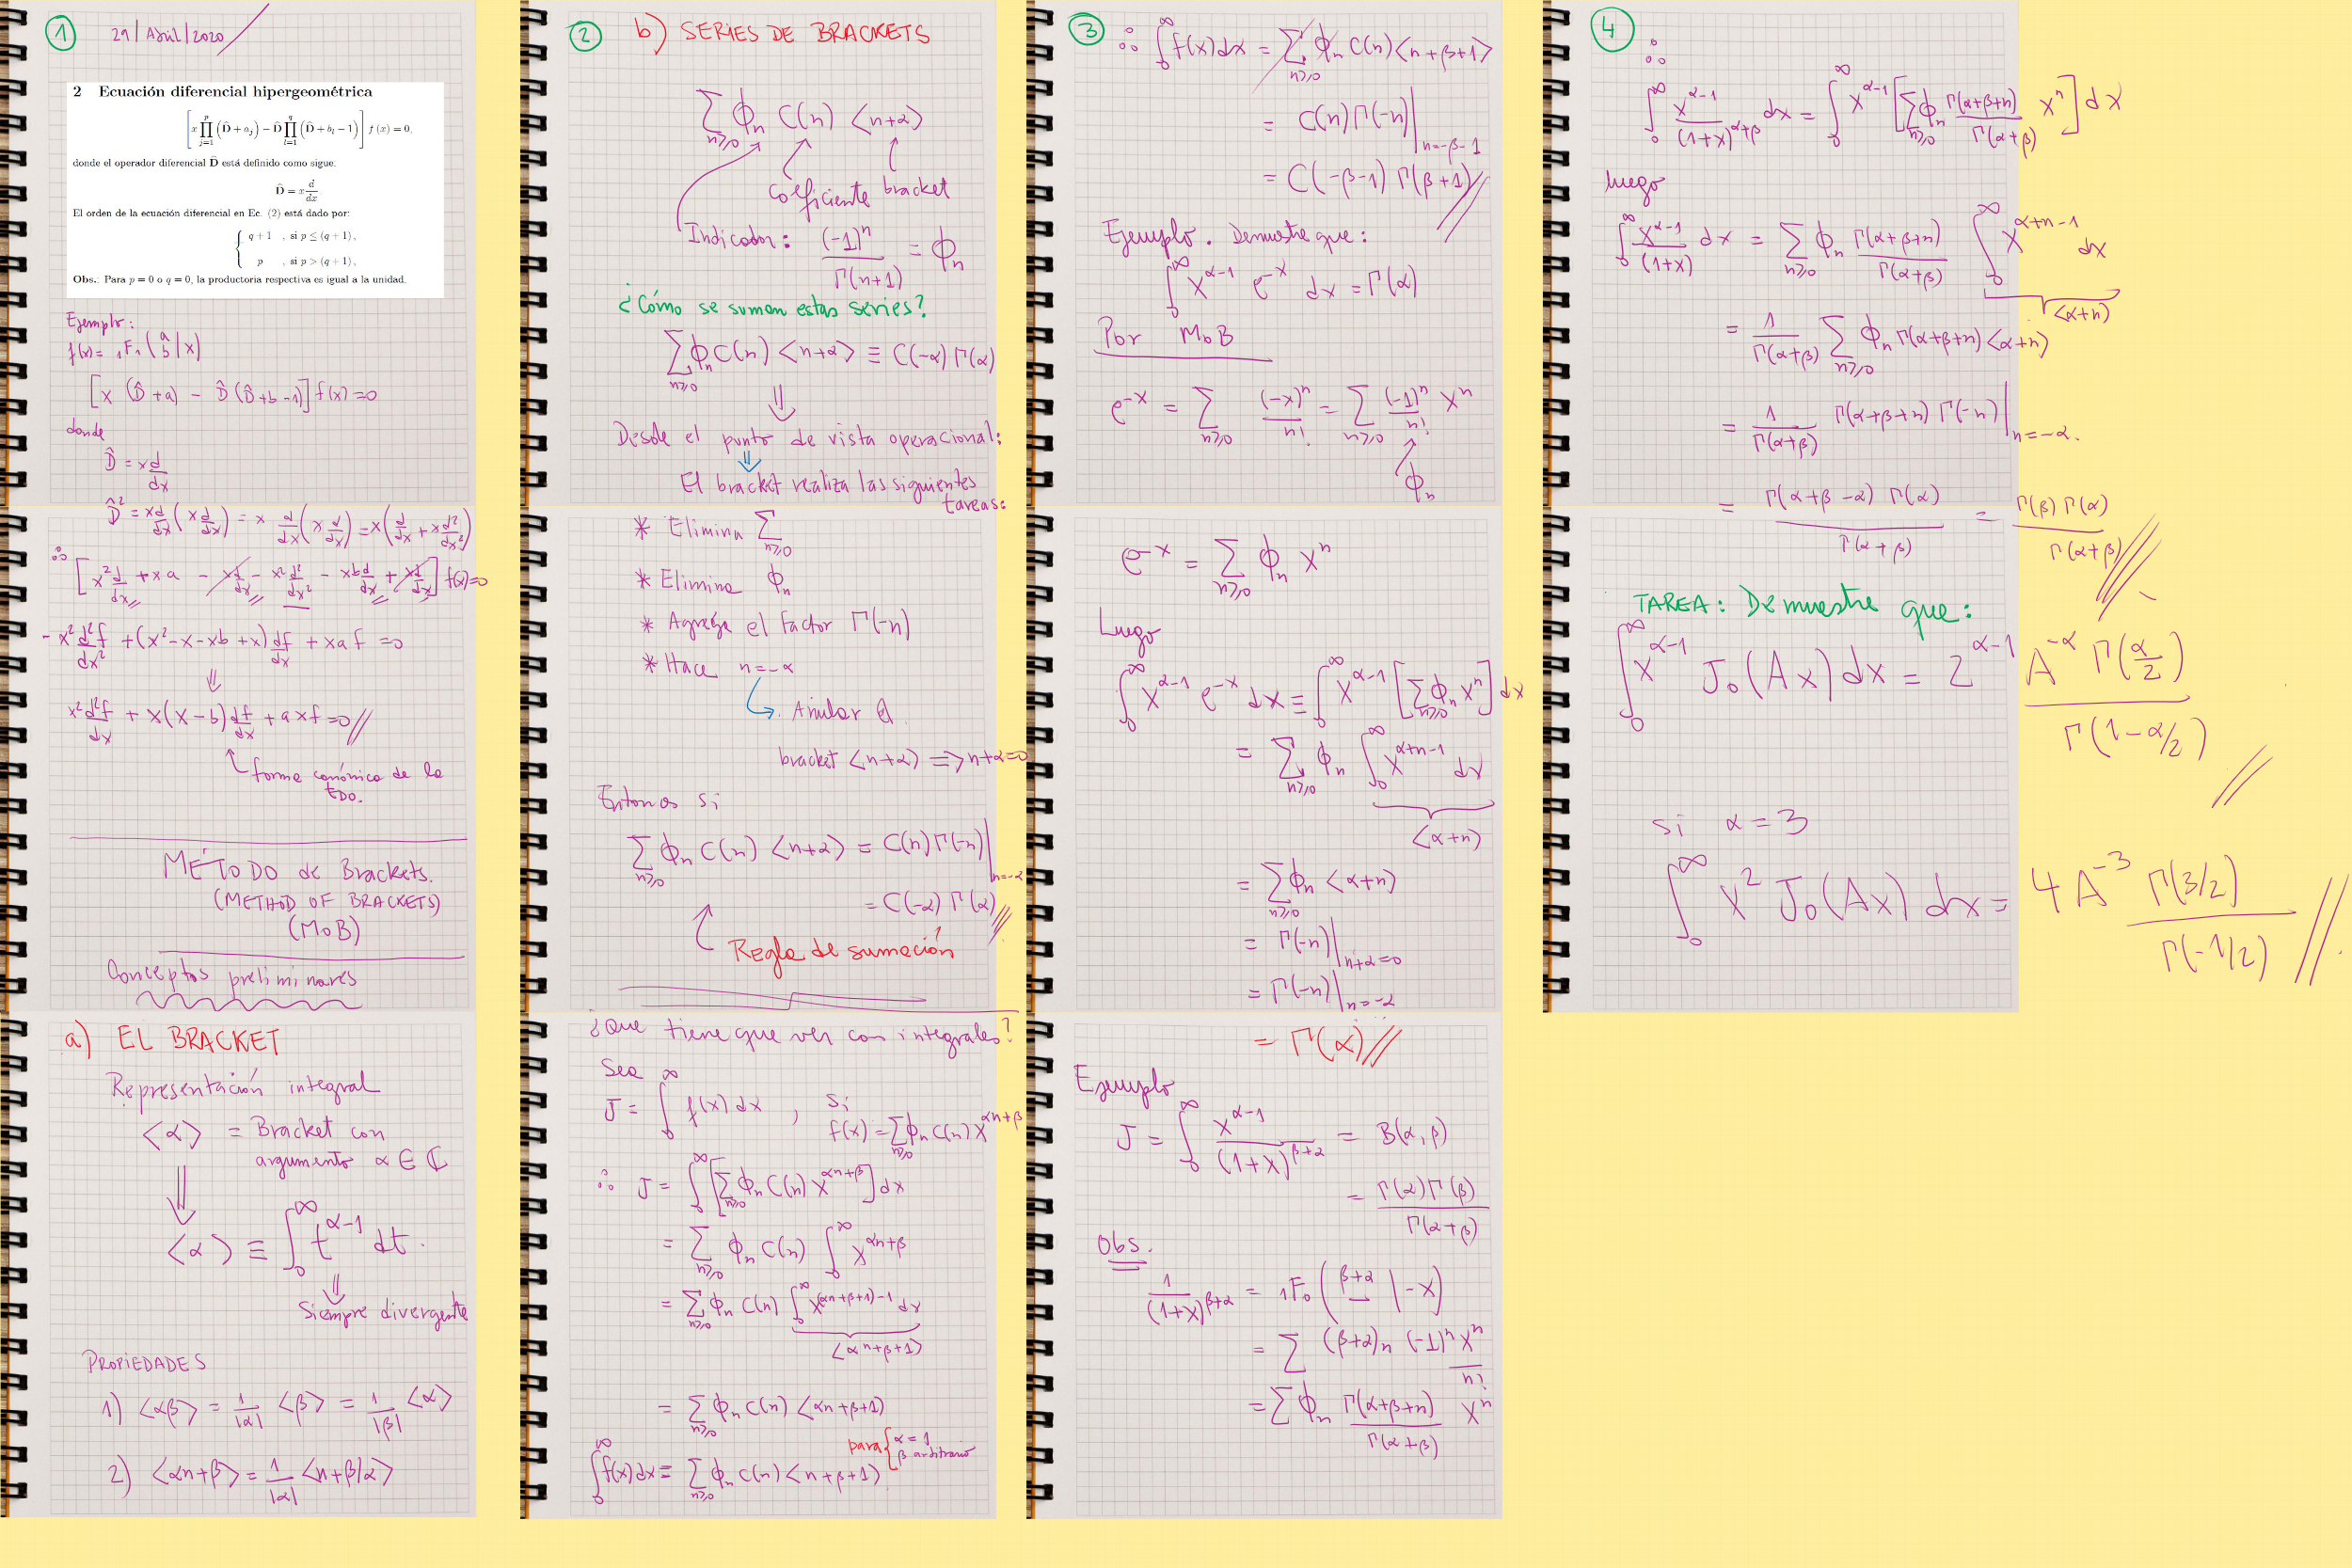 ① 29/Abril/2020
2 Ecuación diferencial hipergeométrica
[x ∏_{j=1}^{p} (D̂ + a_j) − D̂ ∏_{l=1}^{q} (D̂ + b_l − 1)] f(x) = 0,
donde el operador diferencial D̂ está definido como sigue:
D̂ = x d/dx
El orden de la ecuación diferencial en Ec. (2) está dado por:
{ q + 1 , si p ≤ (q + 1),
p , si p > (q + 1),
Obs.: Para p = 0 o q = 0, la productoria respectiva es igual a la unidad.
Ejemplo:
f(x) = ₁F₁(a b | x)
[x (D̂+a) − D̂(D̂+b−1)] f(x) = 0
donde
D̂ = x d/dx
D̂² = x d/dx (x d/dx) = x d/dx (x d/dx) = x (d/dx + x d²/dx²)
∴ [x² d/dx + xa − x d/dx − x² d²/dx² − xb d/dx + x d/dx] f(x) = 0
−x² d²f/dx² + (x² − x − xb + x) df/dx + xaf = 0
⇓
x² d²f/dx + x(x−b) df/dx + axf = 0 //
↑ forma canónica de la
EDO.
MÉTODO de Brackets.
(METHOD OF BRACKETS)
(MoB)
Conceptos preliminares
a) EL BRACKET
Representación integral
⟨α⟩ = Bracket con
argumento α ∈ ℂ
⇓
⟨α⟩ ≡ ∫₀^∞ t^{α−1} dt.
⇓
Siempre divergente
PROPIEDADES
1) ⟨αβ⟩ = 1/|α| ⟨β⟩ = 1/|β| ⟨α⟩
2) ⟨αn+β⟩ = 1/|α| ⟨n+β/α⟩
② b) SERIES DE BRACKETS
∑_{n≥0} ϕ_n C(n) ⟨n+α⟩
coeficiente bracket
Indicador: (−1)^n / Γ(n+1) = ϕ_n
¿Cómo se suman estas series?
∑_{n≥0} ϕ_n C(n) ⟨n+α⟩ ≡ C(−α) Γ(α)
⇓
Desde el punto de vista operacional:
⇓
El bracket realiza las siguientes
tareas:
* Elimina ∑_{n≥0}
* Elimina ϕ_n
* Agrega el factor Γ(−n)
* Hace n = −α
↳ Anular el
bracket ⟨n+α⟩ ⇒ n+α=0
Entonces si
∑_{n≥0} ϕ_n C(n) ⟨n+α⟩ = C(n) Γ(−n)|_{n=−α}
= C(−α) Γ(α) //
Regla de sumación
¿Que tiene que ver con integrales?
Sea
J = ∫₀^∞ f(x) dx , si
f(x) = ∑_{n≥0} ϕ_n C(n) x^{αn+β}
∴ J = ∫₀^∞ [∑_{n≥0} ϕ_n C(n) x^{αn+β}] dx
= ∑_{n≥0} ϕ_n C(n) ∫₀^∞ x^{αn+β}
= ∑_{n≥0} ϕ_n C(n) ∫₀^∞ x^{(αn+β+1)−1} dx
⟨αn+β+1⟩
= ∑_{n≥0} ϕ_n C(n) ⟨αn+β+1⟩
para { α = 1
β arbitrario
∫₀^∞ f(x)dx = ∑_{n≥0} ϕ_n C(n) ⟨n+β+1⟩
③ ∴ ∫₀^∞ f(x)dx = ∑_{n≥0} ϕ_n C(n) ⟨n+β+1⟩
= C(n) Γ(−n)|_{n=−β−1}
= C(−β−1) Γ(β+1) //
Ejemplo. Demuestre que:
∫₀^∞ x^{α−1} e^{−x} dx = Γ(α)
Por MoB
e^{−x} = ∑_{n≥0} (−x)^n / n! = ∑_{n≥0} (−1)^n / n! x^n
↑
ϕ_n
e^{−x} = ∑_{n≥0} ϕ_n x^n
Luego
∫₀^∞ x^{α−1} e^{−x} dx ≡ ∫₀^∞ x^{α−1} [∑_{n≥0} ϕ_n x^n] dx
= ∑_{n≥0} ϕ_n ∫₀^∞ x^{α+n−1} dx
⟨α+n⟩
= ∑_{n≥0} ϕ_n ⟨α+n⟩
= Γ(−n)|_{n+α=0}
= Γ(−n)|_{n=−α}
= Γ(α) //
Ejemplo
J = ∫₀^∞ x^{α−1} / (1+x)^{β+α} = B(α, β)
= Γ(α)Γ(β) / Γ(α+β)
Obs.
1/(1+x)^{β+α} = ₁F₀(β+α − | −x)
= ∑ (β+α)_n (−1)^n x^n / n!
= ∑ ϕ_n Γ(α+β+n) / Γ(α+β) x^n
④ ∴
∫₀^∞ x^{α−1} / (1+x)^{α+β} dx = ∫₀^∞ x^{α−1} [∑_{n≥0} ϕ_n Γ(α+β+n) / Γ(α+β) x^n] dx
luego
∫₀^∞ x^{α−1} / (1+x) dx = ∑_{n≥0} ϕ_n Γ(α+β+n) / Γ(α+β) ∫₀^∞ x^{α+n−1} dx
⟨α+n⟩
= 1/Γ(α+β) ∑_{n≥0} ϕ_n Γ(α+β+n) ⟨α+n⟩
= 1/Γ(α+β) Γ(α+β+n) Γ(−n)|_{n=−α.}
= Γ(α+β−α) Γ(α) / Γ(α+β) = Γ(β) Γ(α) / Γ(α+β) //
TAREA: Demuestre que:
∫₀^∞ x^{α−1} J₀(Ax) dx = 2^{α−1} A^{−α} Γ(α/2) / Γ(1−α/2) //
si α = 3
∫₀^∞ x² J₀(Ax) dx = 4A^{−3} Γ(3/2) / Γ(−1/2) //